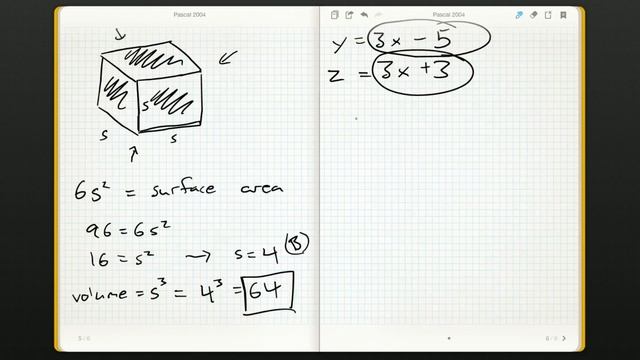 Pascal 2004
s
s
s
6s² = surface area
96 = 6s²
16 = s² → s = 4 B
volume = s³ = 4³ = 64
5 / 6
Pascal 2004
y = 3x - 5
z = 3x + 3
6 / 6